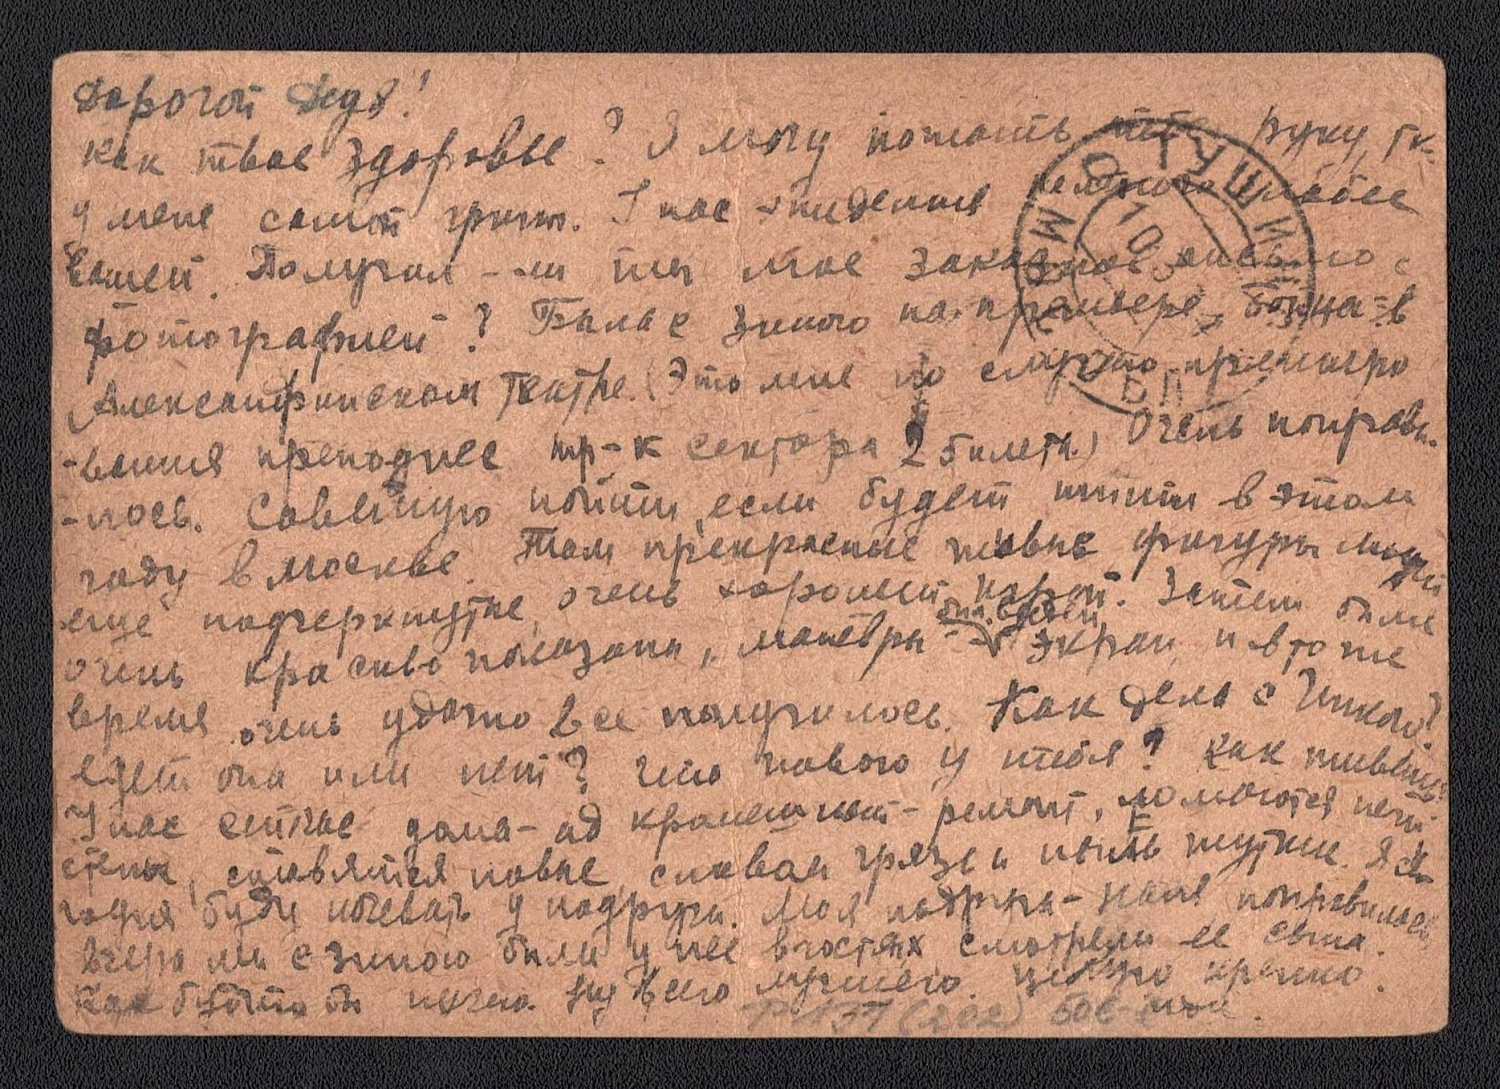 Дорогой Дядя!
Как твое здоровье? Я могу пожать тебе руку, т.к.
у меня самой грипп. У нас эпидемия немного слабее
вашей. Получил-ли ты мое заказное письмо с
фотографией? Была с Зиною на премьере в
Александринском театре. (Это мне по случаю премиро
-вания преподнес сектора 2 билета.) Очень понрави-
-лось. Советую пойти, если будет итти в этом
году в Москве. Там прекрасные живые фигуры
еще подчеркнутые, очень хороший Затем были
очень красиво показаны, маневры - экран, и в то же
время очень удачно все получилось. Как дела с
едет она или нет? Что нового у тебя? Как живешь?
У нас сейчас дома - ад кромешный - ремонт, ломаются печи
стены, ставятся новые, словом грязь и пыль жуткие. Я се-
годня буду ночевать у подруги. Моя подруга - поправилась,
Вчера мы с Зиною были у нее в гостях смотрели ее сына.
Как будто бы ничего. Ну всего лучшего. Целую крепко.
ТУШИНО
МОСК
ОБЛ
10
Р-137 (202)